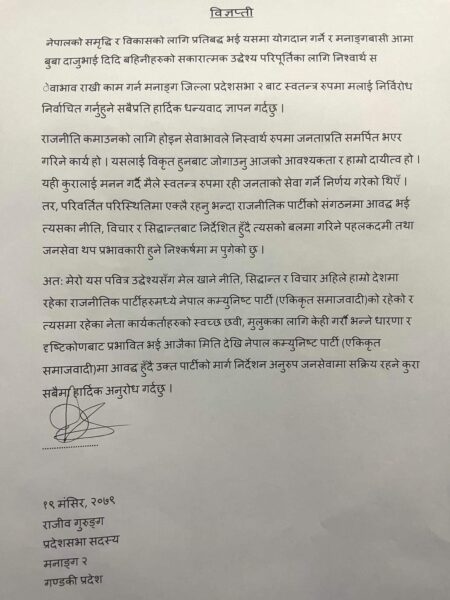 विज्ञप्ती
नेपालको समृद्धि र विकासको लागि प्रतिबद्ध भई यसमा योगदान गर्ने र मनाङबासी आमा
बुबा दाजुभाई दिदि बहिनीहरुको सकारात्मक उद्धेश्य परिपूर्तिका लागि निश्वार्थ स
ेवाभाव राखी काम गर्न मनाङ्ग जिल्ला प्रदेशसभा २ बाट स्वतन्त्र रुपमा मलाई निर्विरोध
निर्वाचित गर्नुहुने सबैप्रति हार्दिक धन्यवाद ज्ञापन गर्दछु ।
राजनीति कमाउनको लागि होइन सेवाभावले निस्वार्थ रुपमा जनताप्रति समर्पित भएर
गरिने कार्य हो । यसलाई विकृत हुनबाट जोगाउनु आजको आवश्यकता र हाम्रो दायीत्व हो ।
यही कुरालाई मनन गर्दै मैले स्वतन्त्र रुपमा रही जनताको सेवा गर्ने निर्णय गरेको थिएँ ।
तर, परिवर्तित परिस्थितिमा एक्लै रहनु भन्दा राजनीतिक पार्टीको संगठनमा आवद्ध भई
त्यसका नीति, विचार र सिद्धान्तबाट निर्देशित हुँदै त्यसको बलमा गरिने पहलकदमी तथा
जनसेवा थप प्रभावकारी हुने निश्कर्षमा म पुगेको छु ।
अत: मेरो यस पवित्र उद्धेश्यसँग मेल खाने नीति, सिद्धान्त र विचार अहिले हाम्रो देशमा
रहेका राजनीतिक पार्टीहरुमध्ये नेपाल कम्युनिष्ट पार्टी (एकिकृत समाजवादी)को रहेको र
त्यसमा रहेका नेता कार्यकर्ताहरुको स्वच्छ छवी, मुलुकका लागि केही गरौँ भन्ने धारणा र
दृष्टिकोणबाट प्रभावित भई आजैका मिति देखि नेपाल कम्युनिष्ट पार्टी (एकिकृत
समाजवादी)मा आवद्ध हुँदै उक्त पार्टीको मार्ग निर्देशन अनुरुप जनसेवामा सक्रिय रहने कुरा
सबैमा हार्दिक अनुरोध गर्दछु ।
१९ मंसिर, २०७९
राजीव गुरुङ्ग
प्रदेशसभा सदस्य
मनाङ्ग २
गण्डकी प्रदेश